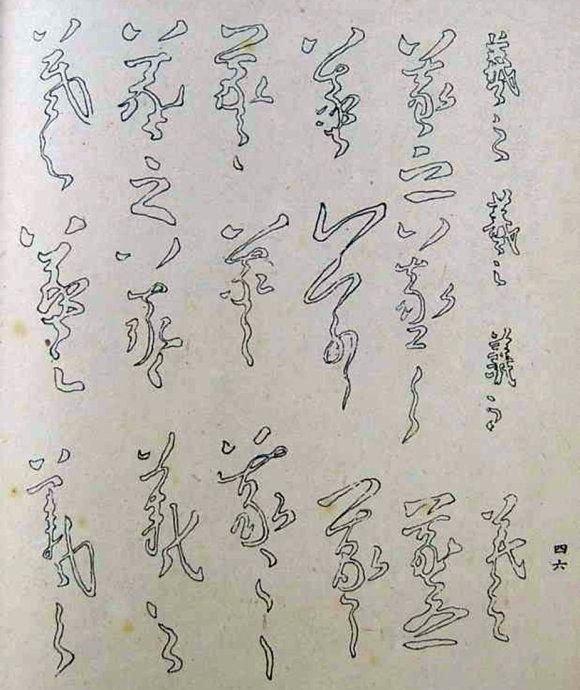 羲之羲之羲之羲之
羲之羲之羲之
羲之羲之羲之
羲之羲之羲之
羲之羲之羲之
羲之羲之羲之
四六